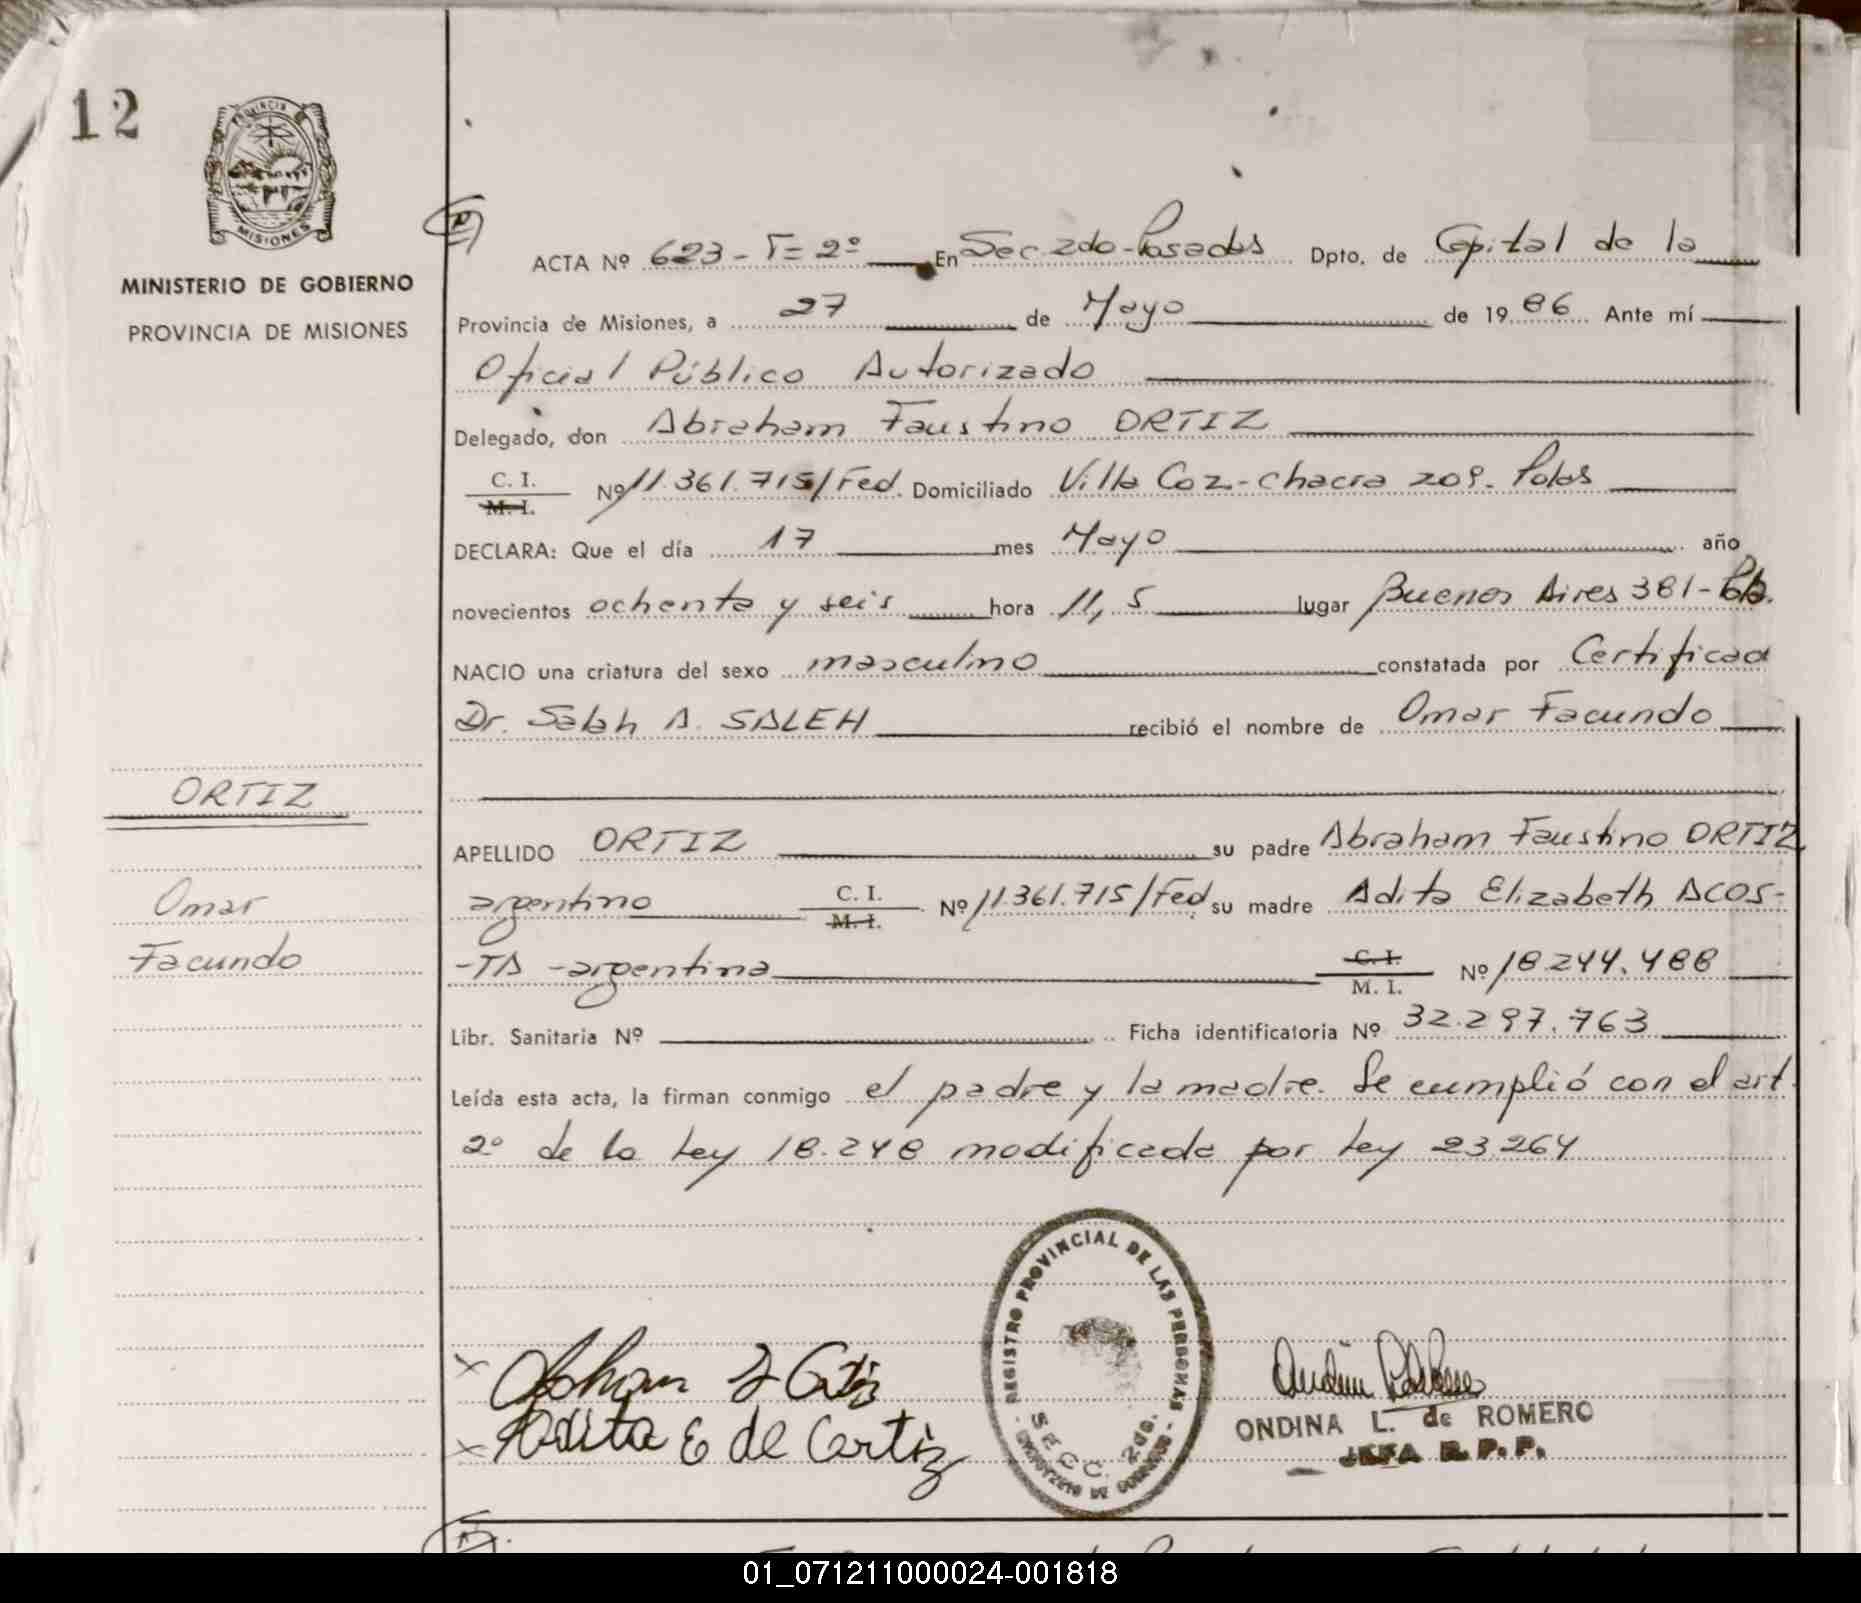 12
PROVINCIA
MISIONES
MINISTERIO DE GOBIERNO
PROVINCIA DE MISIONES
ACTA Nº 623 - T= 2º En Sec. 2do - Posadas Dpto. de Capital de la
Provincia de Misiones, a 27 de Mayo de 19 86 Ante mí
Oficial Público Autorizado
Delegado, don Abraham Faustino ORTIZ
C. I.
M. I. Nº 11.361.715/Fed. Domiciliado Villa Coz.- Chacra 209. Pdas
DECLARA: Que el día 17 mes Mayo año
novecientos ochenta y seis hora 11,5 lugar Buenos Aires 381 -
NACIO una criatura del sexo masculino constatada por Certificad
Dr. Salah A. SALEH recibió el nombre de Omar Facundo
ORTIZ
APELLIDO ORTIZ su padre Abraham Faustino ORTIZ
Omar
argentino C. I.
M. I. Nº 11.361.715/Fed su madre Adita Elizabeth ACOS-
Facundo
-TA - argentina C. I.
M. I. Nº 18.244.488
Libr. Sanitaria Nº Ficha identificatoria Nº 32.297.763
Leída esta acta, la firman conmigo el padre y la madre. Se cumplió con el art.
2º de la Ley 18.248 modificada por Ley 23.264
REGISTRO PROVINCIAL DE LAS PERSONAS
SECC. 2da.
MINISTERIO DE GOBIERNO
Adita E de Ortiz
ONDINA L. de ROMERO
JEFA R. P. P.
01_071211000024-001818